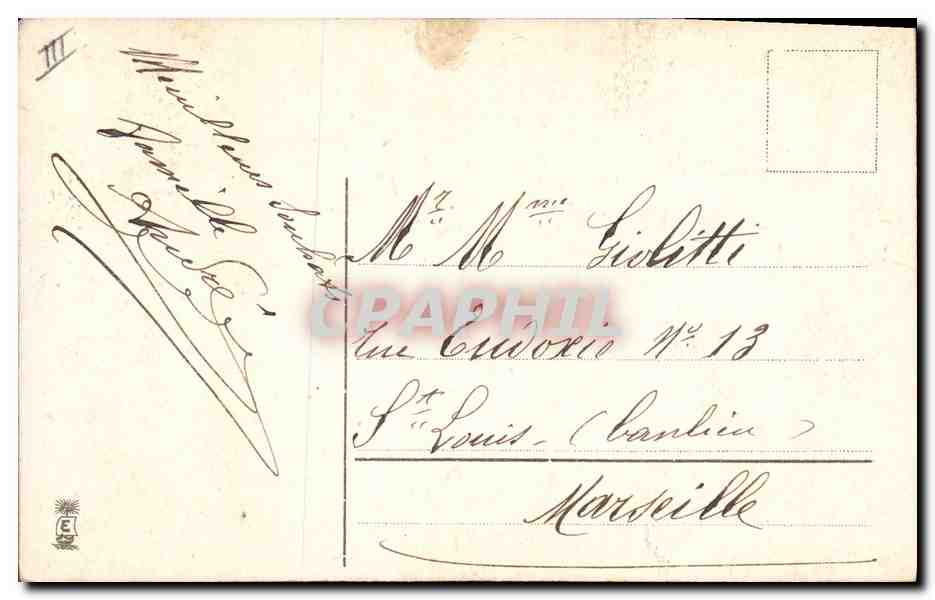 III
Meilleurs Souhaits
Famille
André
Mr Mme Giolitti
rue Eudoxie No 13
St Louis - (banlieu)
Marseille
CPAPHIL
E